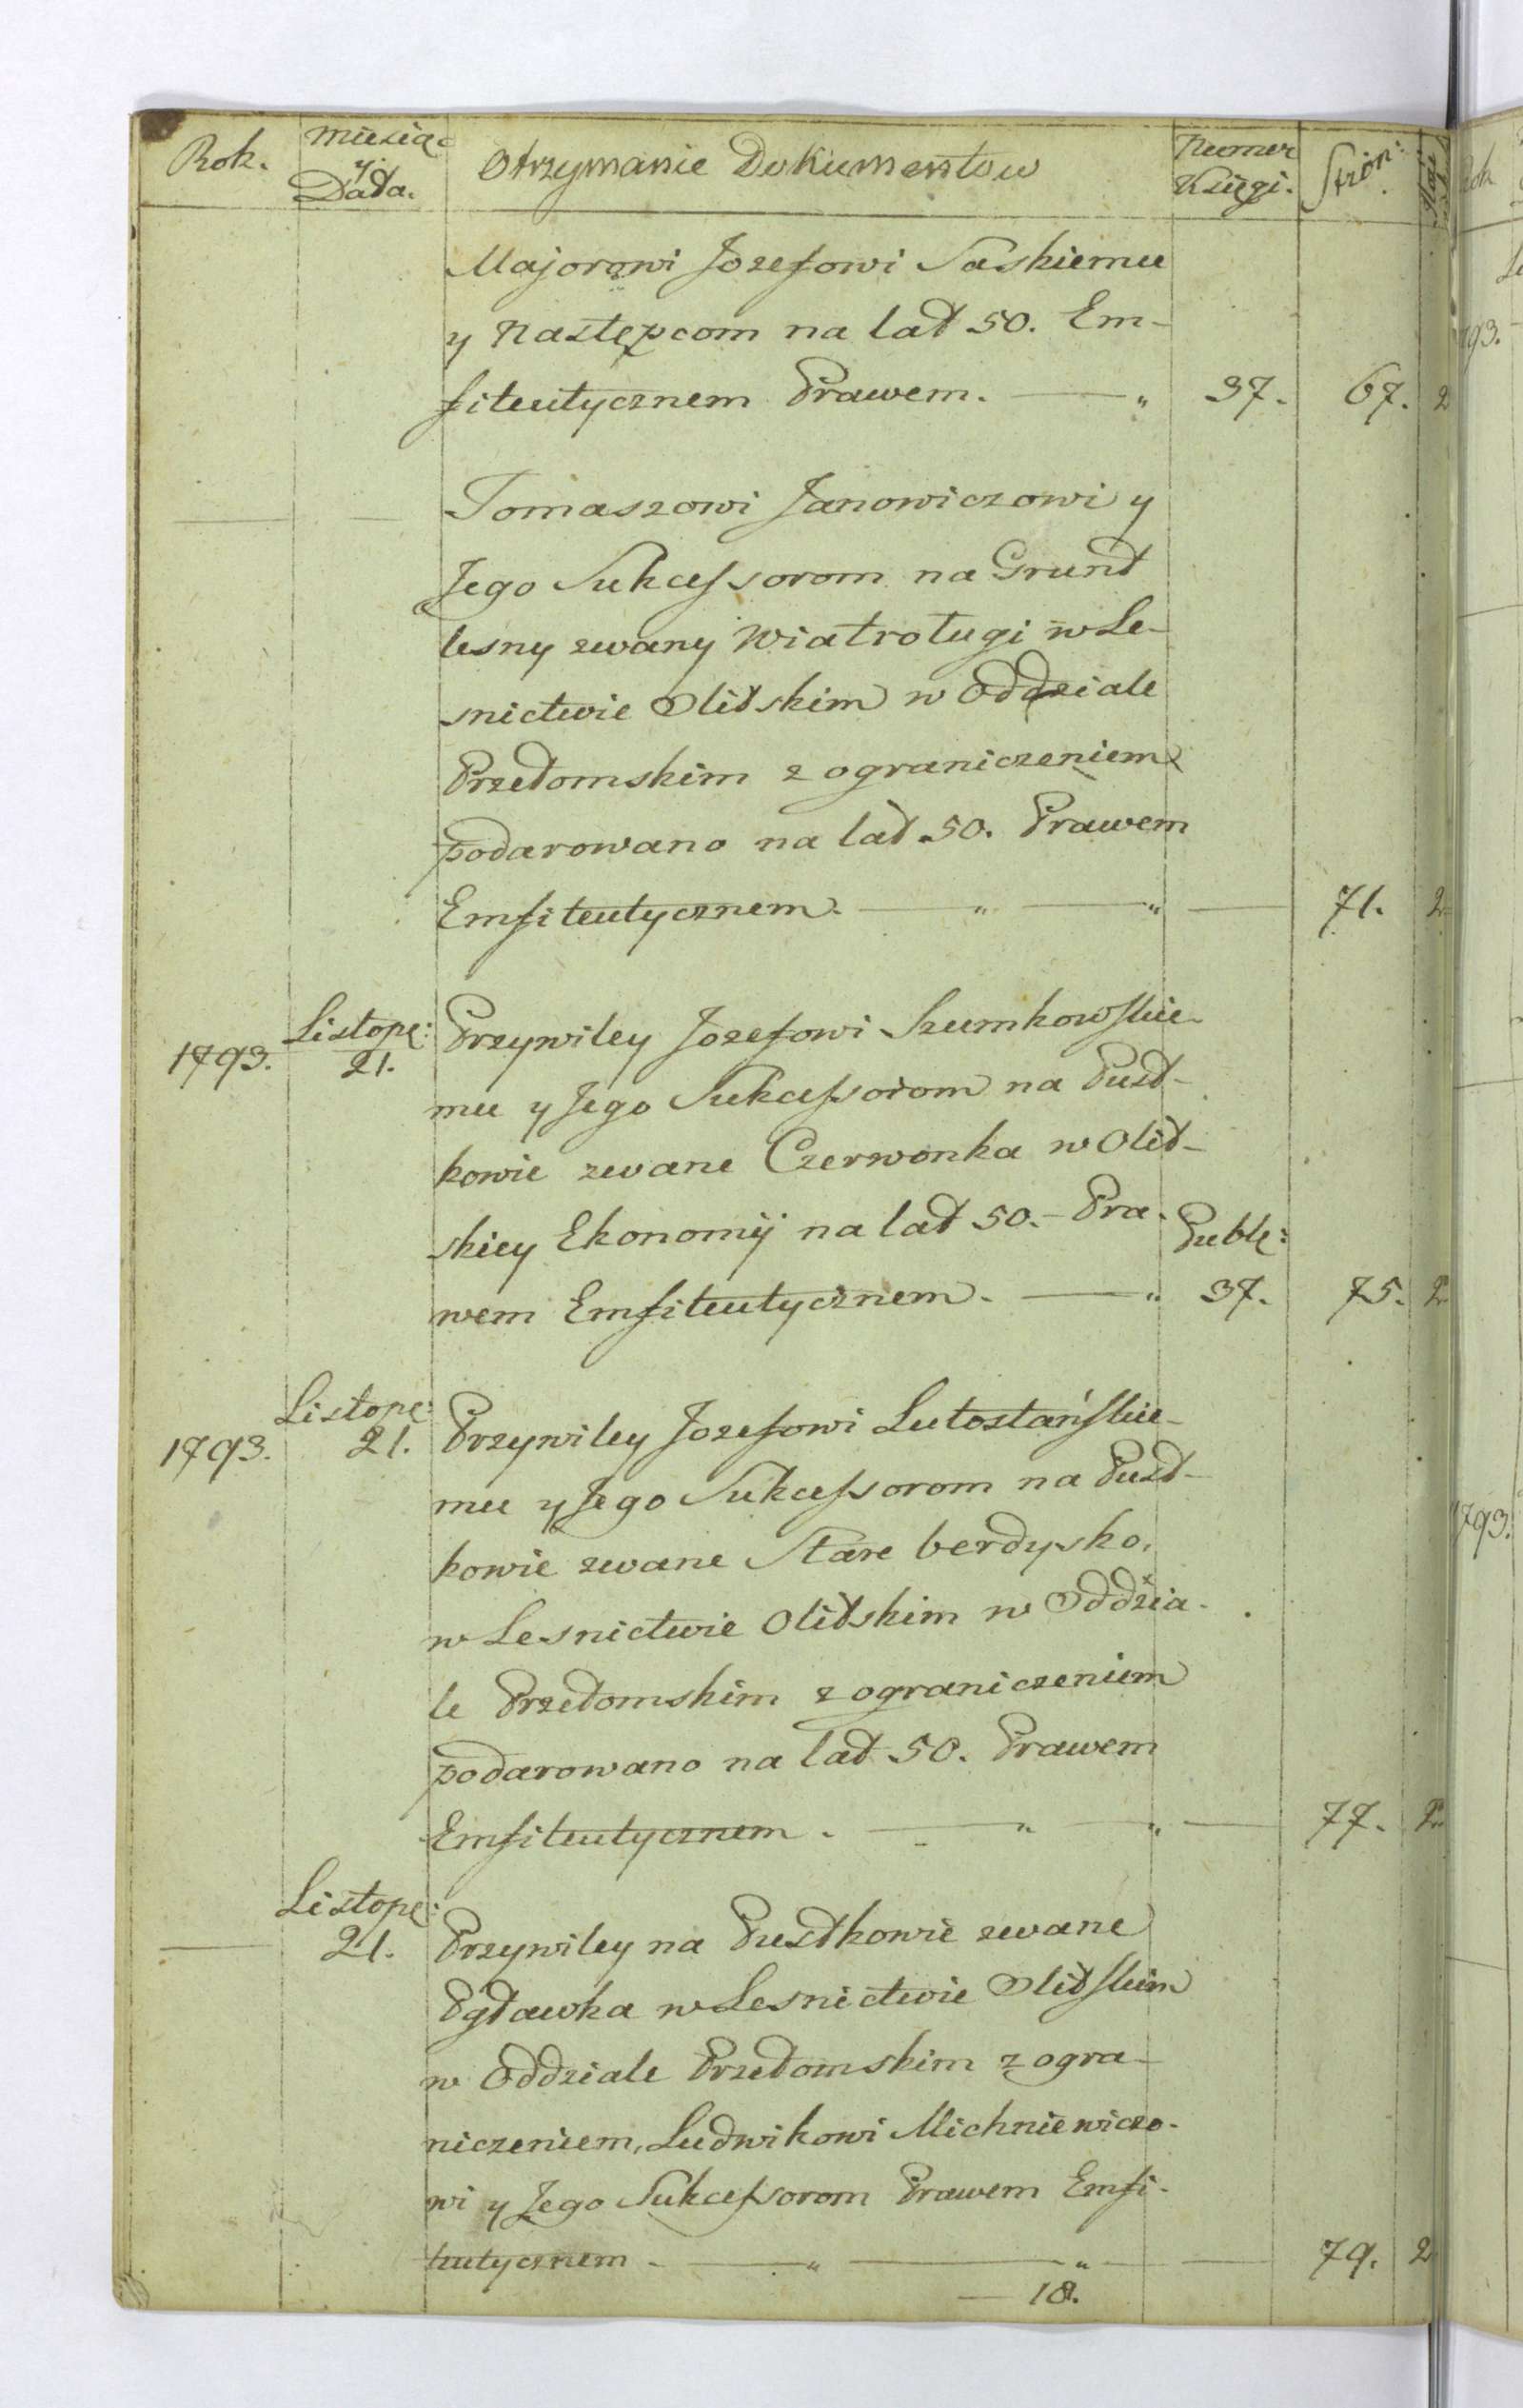 Rok.
Miesiąc
y
Data.
Otrzymanie Dokumentow
Numer
Księgi.
Stron:
Majorowi Jozefowi Saskiemu
y Następcom na lat 50. Em-
fiteutycznem Prawem. — „ 37. 67. 2
— — Tomaszowi Janowiczowi y
Jego Sukcessorom na Grunt
lesny zwany Wiatroługi w Le-
snictwie Olitskim w Oddziale
Przełomskim z ograniczeniem
podarowano na lat 50. Prawem
Emfiteutycznem. — „ — „ — 71. 2
1793. Listopę: 21. Przywiley Jozefowi Szumkowskie-
mu y Jego Sukcessorom na Pust-
kowie zwane Czerwonka w Olit-
skiey Ekonomij na lat 50.- Pra- Publę:
wem Emfiteutycznem. — „ 37. 75. 2
1793. Listopę: 21. Przywiley Jozefowi Lutostańskie-
mu y Jego Sukcessorom na Pust-
kowie zwane Stare berdysko,
w Lesnictwie Olitskim w Oddzia-
le Przełomskim z ograniczeniem
podarowano na lat 50. Prawem
Emfiteutycznem. — „ — „ — 77. 2
— Listopę: 21. Przywiley na Pustkowie zwane
w Lesnictwie Olitskim
w Oddziale Przełomskim z ogra-
niczeniem, Ludwikowi Michniewiczo-
wi y Jego Sukcessorom Prawem Emfi-
teutycznem — „ — „ — 79. 2
— 18.
Rok
793.
1793.